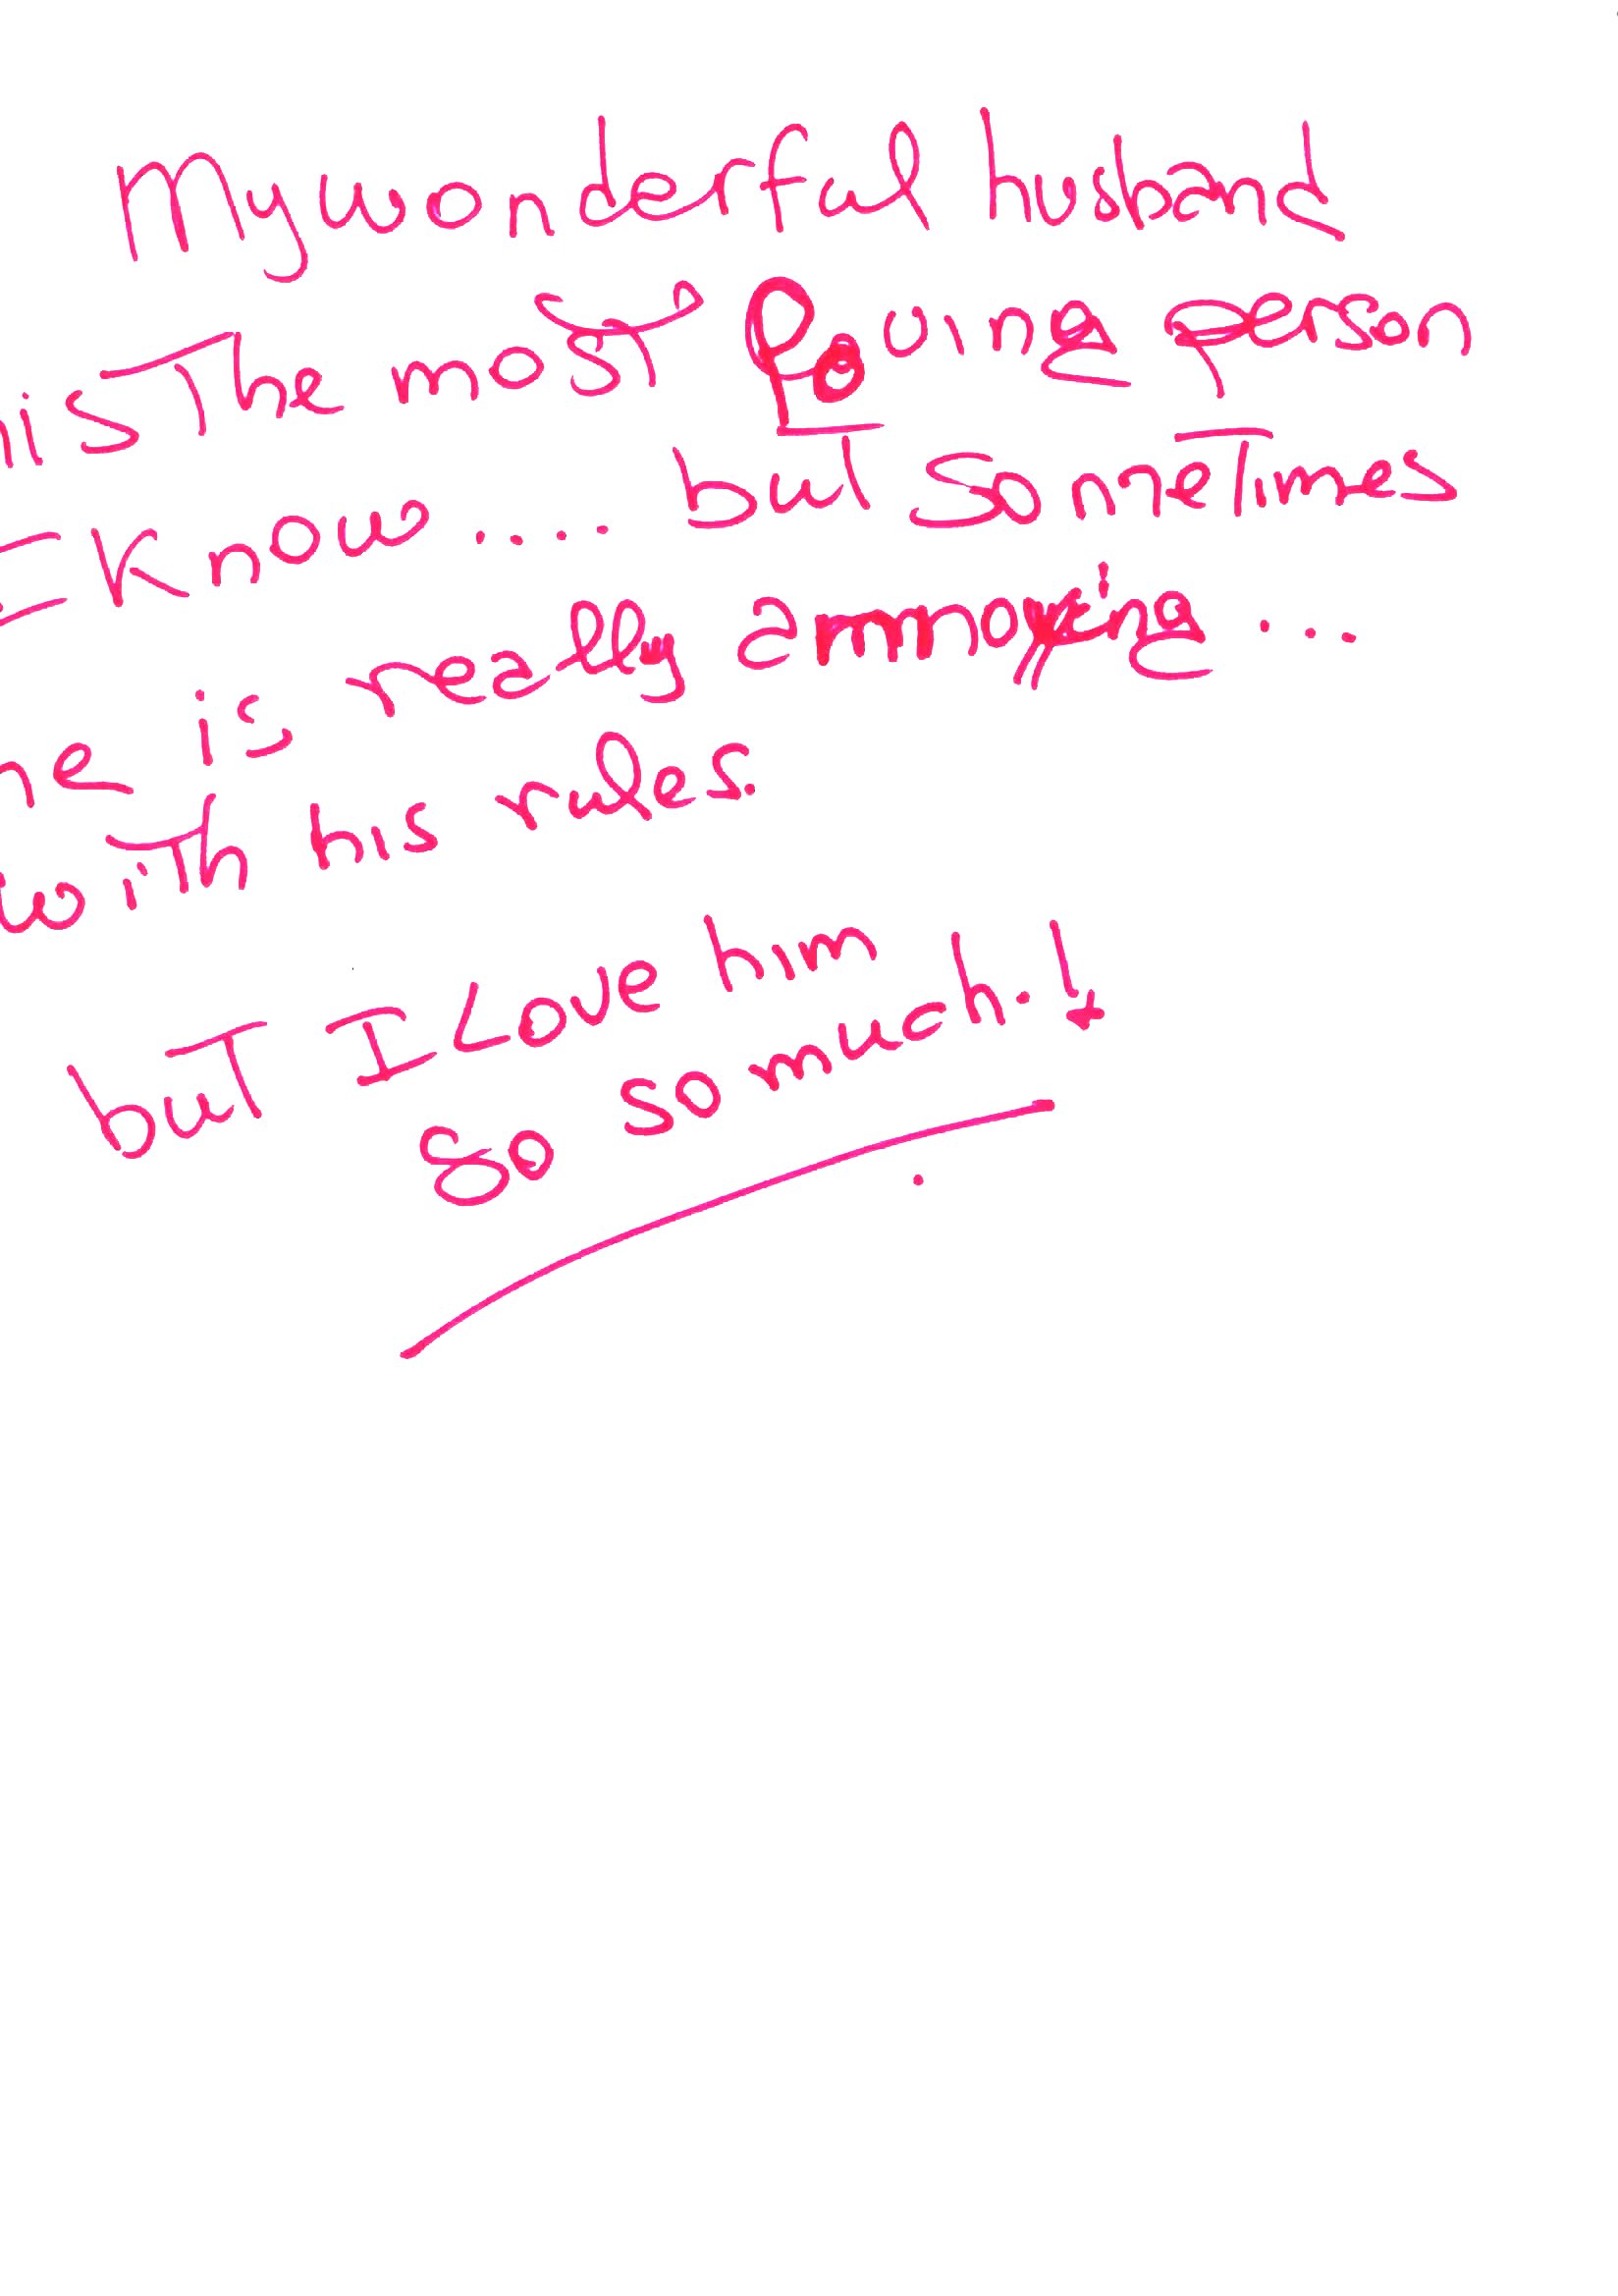 My wonderful husband
is The most loving person
I know.... but sometimes
he is really annoying...
with his rules.
but I Love him
so so much.!